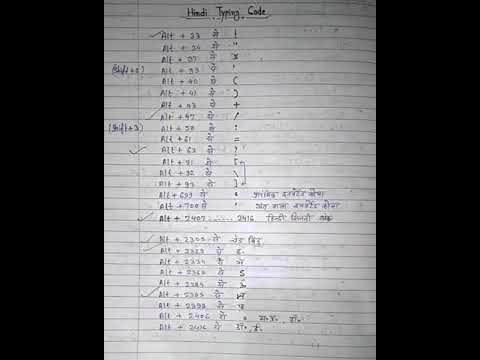 Hindi Typing Code
Alt + 33 से !
Alt + 34 से "
Alt + 37 से
(Shift+2) Alt + 39 से '
Alt + 40 से (
Alt + 41 से )
Alt + 43 से +
Alt + 47 से /
(Shift+3) Alt + 58 से :
Alt + 61 से =
Alt + 63 से ?
Alt + 91 से [
Alt + 92 से \
Alt + 93 से ]
Alt + 699 से ‘ इनवर्टेड कोमा
Alt + 700 से ’ इनवर्टेड कोमा
Alt + 2407 ...... 2416 हिन्दी गिनती अंक
Alt + 2305 से चंद्र बिंदु
Alt + 2323 से
Alt + 2334 से
Alt + 2365 से ऽ
Alt + 2384 से ॐ
Alt + से
Alt + से
Alt + 2406 से
Alt + 2416 से